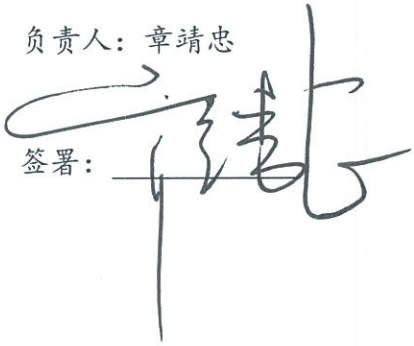 负责人：章靖忠
签署：